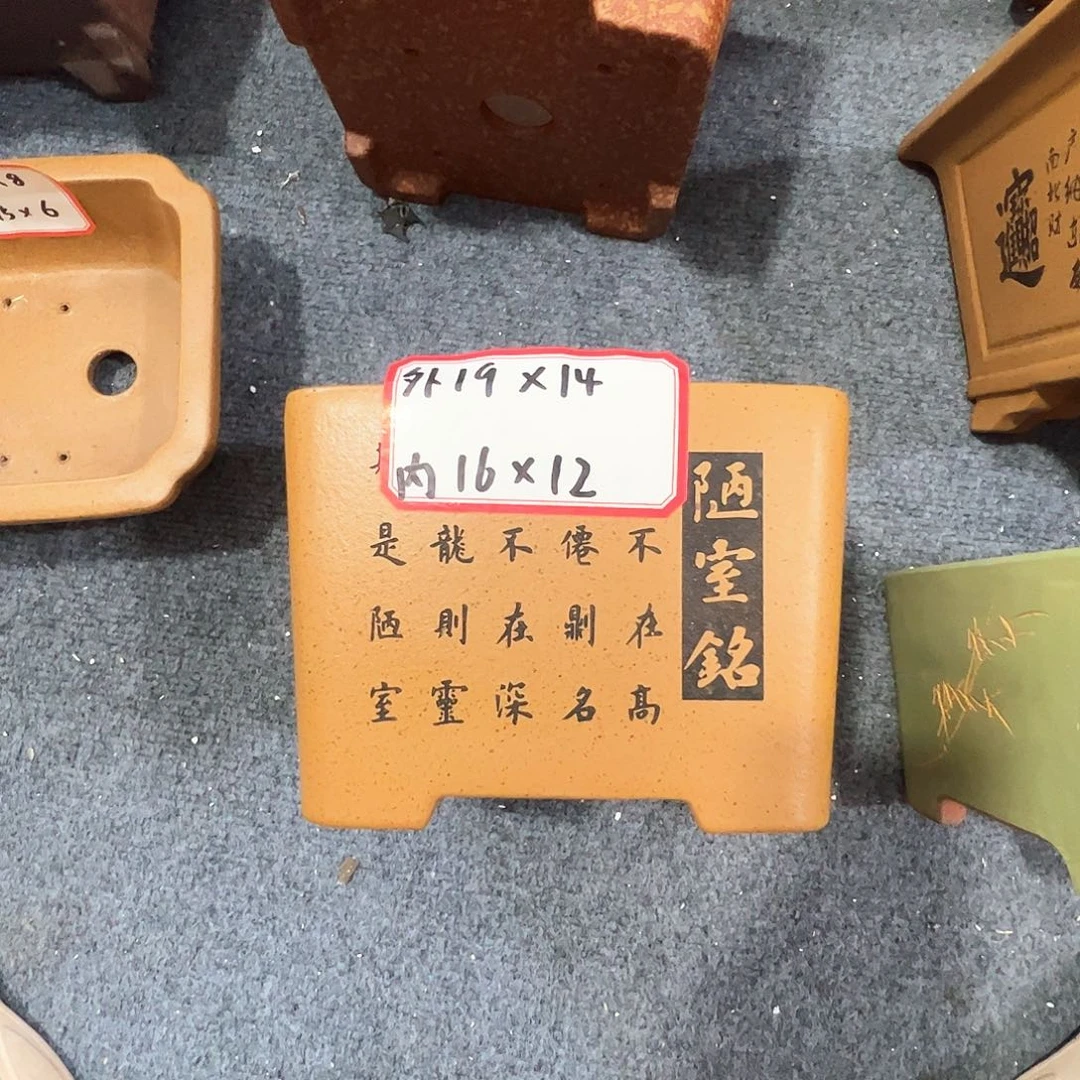 8
5×6
外19×14
内16×12
陋室銘
不在高
僊則名
不在深
龍則靈
是陋室
南北财